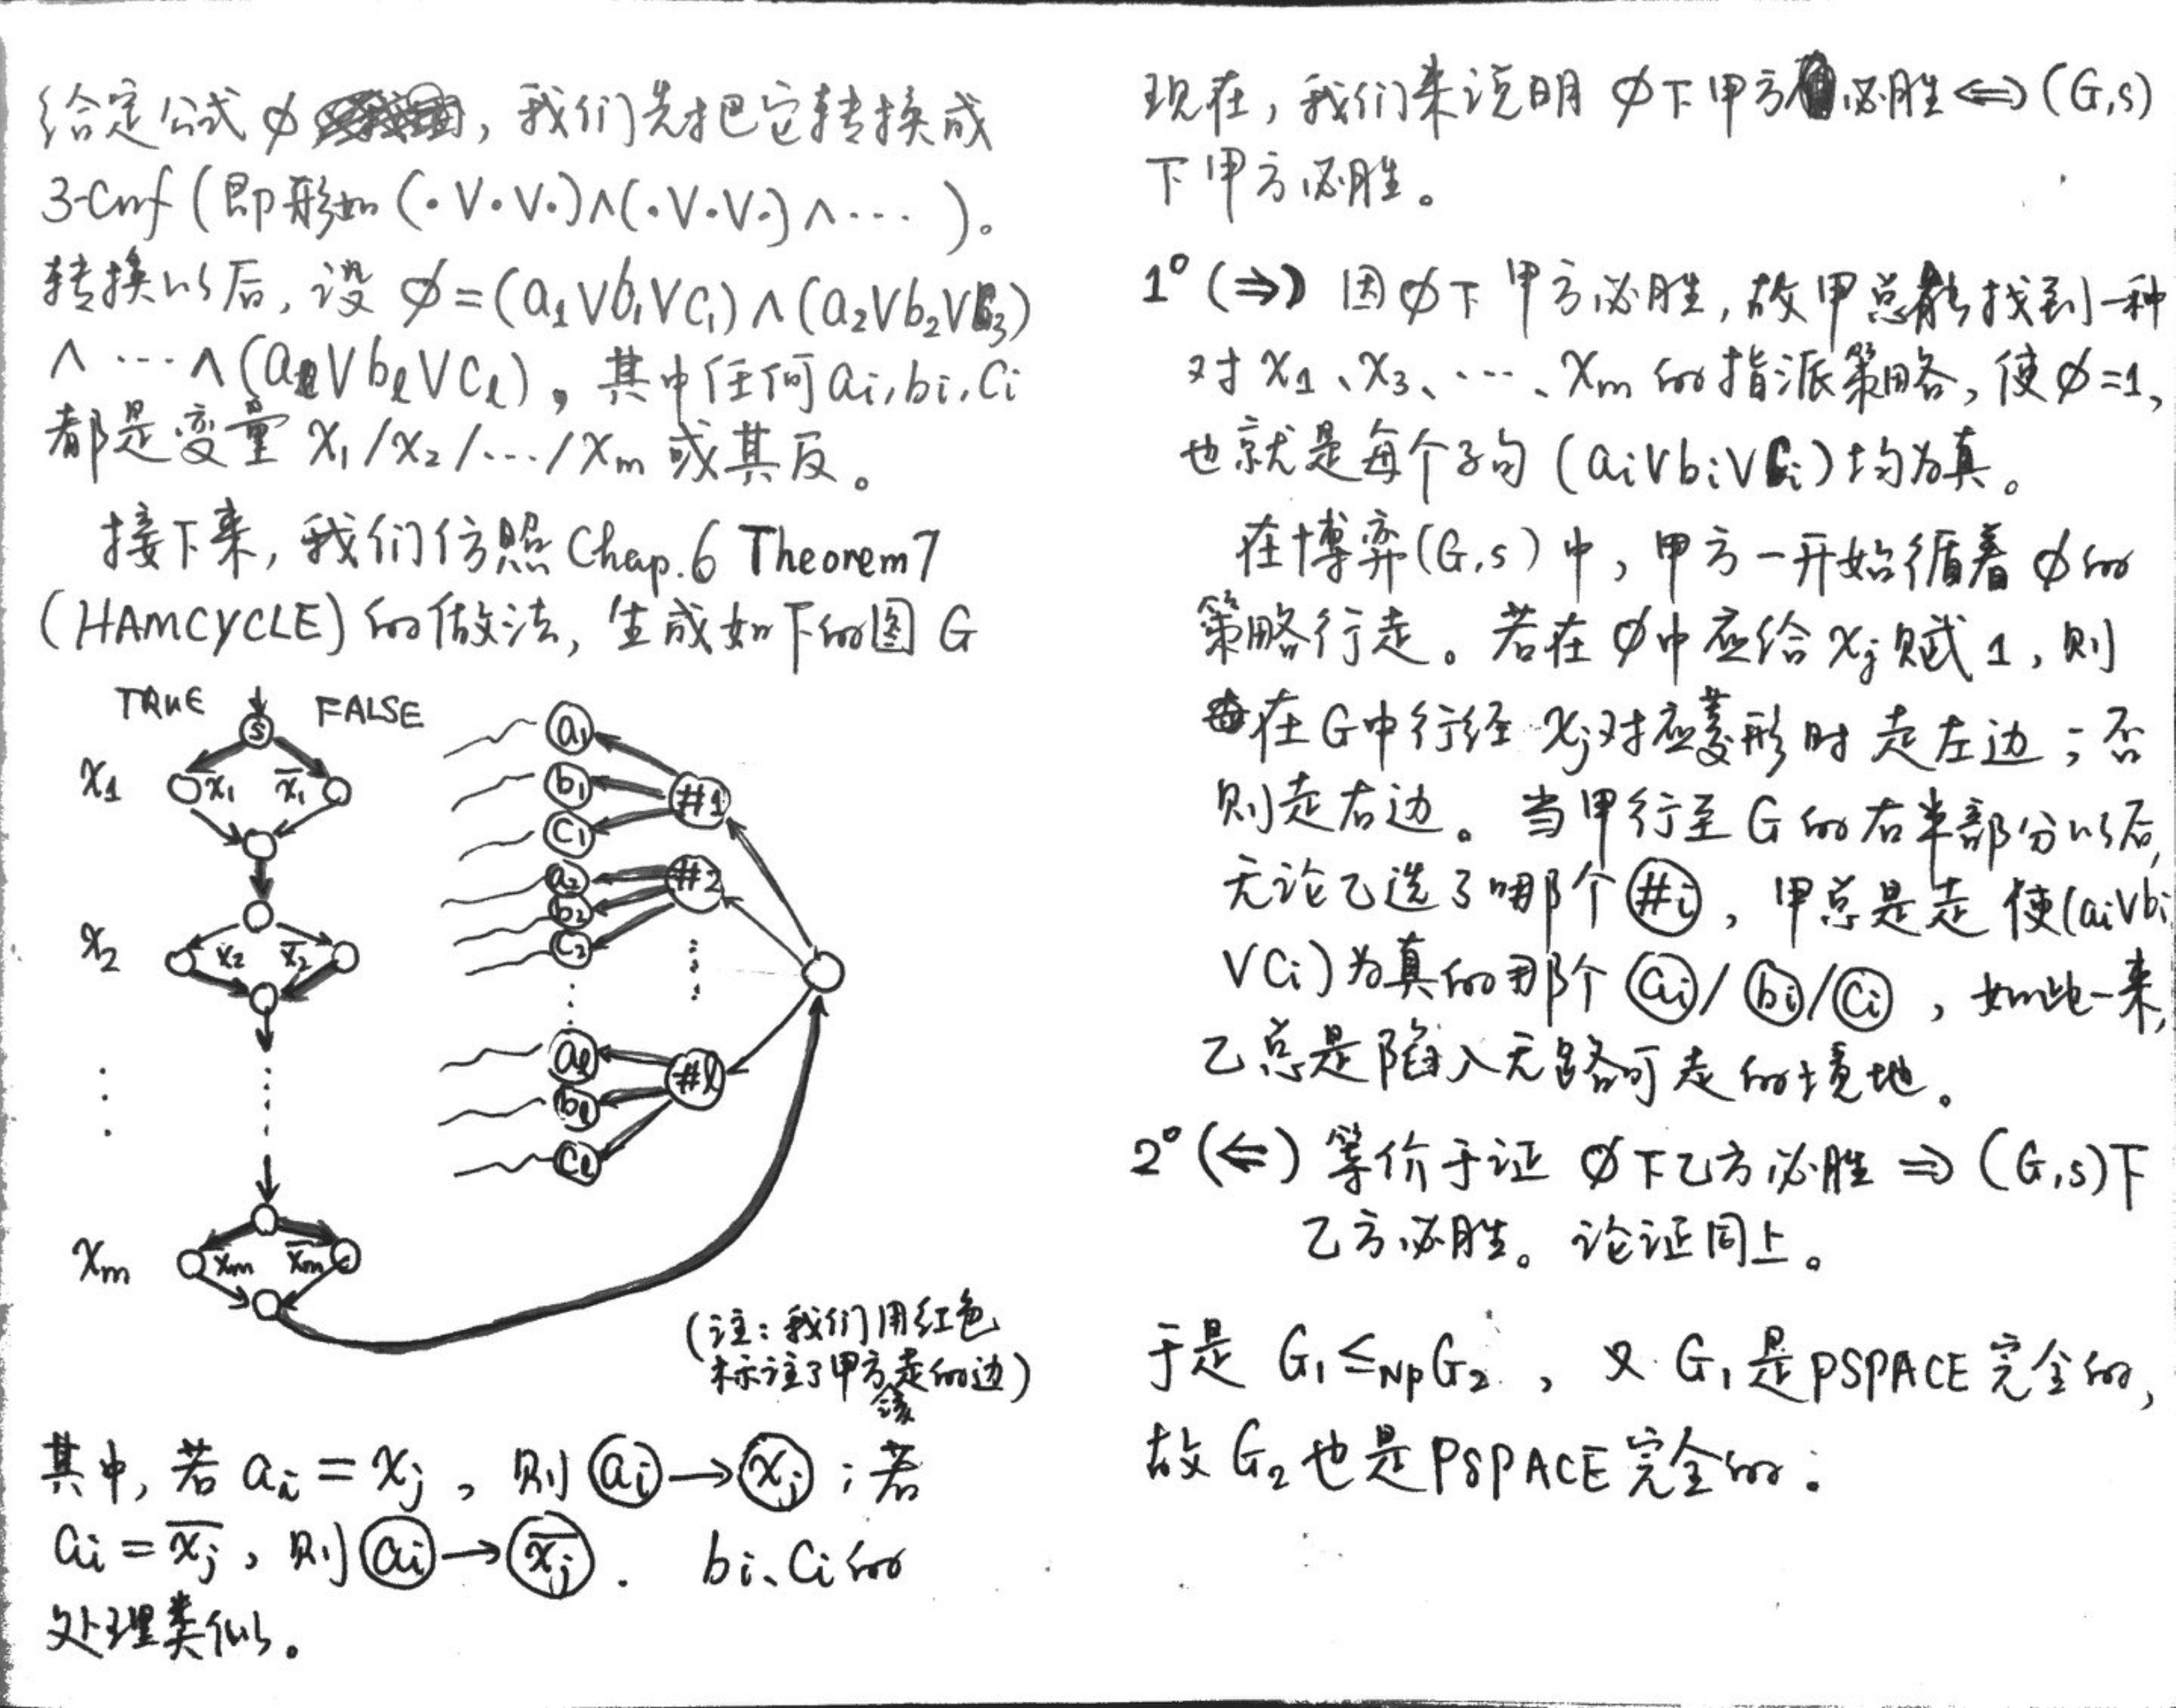 给定公式 φ , 我们先把它转换成
3-Cnf (即形如 (·∨·∨·)∧(·∨·∨·)∧··· )。
转换以后, 设 φ=(a₁∨b₁∨c₁)∧(a₂∨b₂∨c₃)
∧···∧(aℓ∨bℓ∨cℓ), 其中任何 ai, bi, ci
都是变量 x₁/x₂/.../xm 或其反。
接下来, 我们仿照 Chap.6 Theorem7
(HAMCYCLE) 的做法, 生成如下的图 G
TRUE FALSE
s
x₁ x₁ x̄₁
x₂ x₂ x̄₂
xm xm x̄m
a₁
b₁ #1
c₁
a₂ #2
b₂
c₂
aℓ
bℓ #ℓ
cℓ
(注: 我们用红色
标注了甲方走的边)
该
其中, 若 ai = xj , 则 ai → xj ; 若
ai = x̄j , 则 ai → x̄j . bi、ci 的
处理类似。
现在, 我们来说明 φ下甲方必胜 ⇔ (G,s)
下甲方必胜。
1° (⇒) 因φ下甲方必胜, 故甲总能找到一种
对 x₁、x₃、···、xm 的指派策略, 使φ=1,
也就是每个子句 (ai∨bi∨ci) 均为真。
在博弈(G,s)中, 甲方一开始循着 φ的
策略行走。若在 φ中应给 xj 赋 1, 则
在G中行经 xj对应菱形时 走左边; 否
则走右边。当甲行至 G的右半部分以后,
无论乙选了哪个 #i , 甲总是走 使(ai∨bi
∨ci)为真的那个 ai / bi / ci , 如此一来,
乙总是陷入无路可走的境地。
2° (⇐) 等价于证 φ下乙方必胜 ⇒ (G,s)下
乙方必胜。论证同上。
于是 G₁ ≤NP G₂ , 又 G₁ 是 PSPACE 完全的,
故 G₂ 也是 PSPACE 完全的.